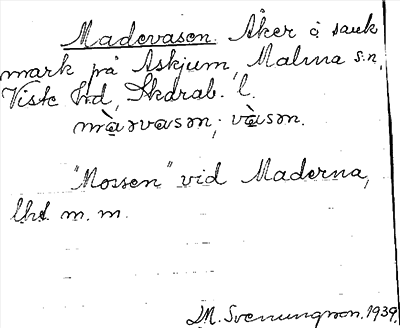 Madevasen. Åker å sank
mark på Askjum, Malma sn,
Viste hd, Skarab. l.
màəvasən, vàsən.
"Mossen" vid Maderna,
lhd. m. m.
M. Svenungson. 1939.